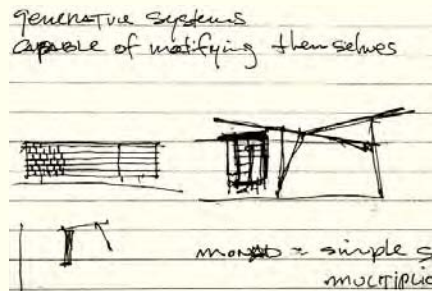 generative systems
CAPABLE of modifying themselves
MONAD = simple s
MULTIPLIC